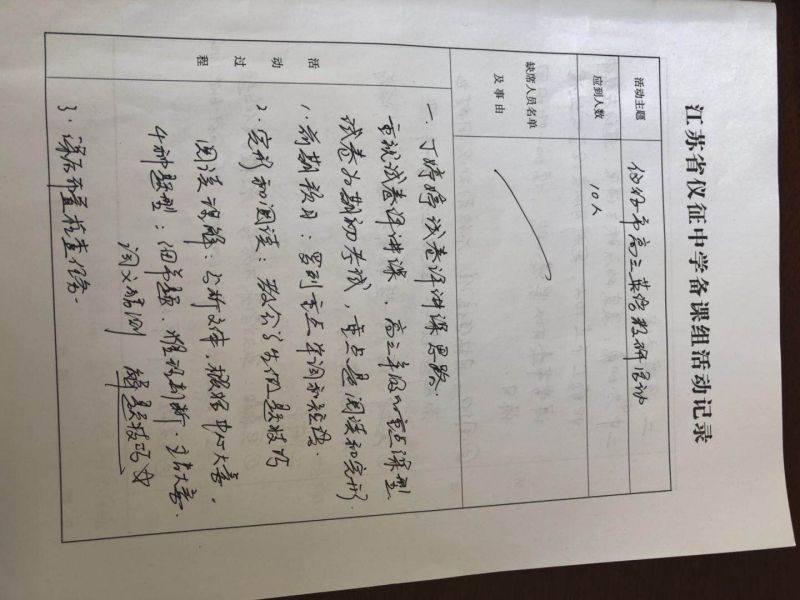 江苏省仪征中学备课组活动记录
活动主题 仪征市高三英语教研活动
应到人数 10人
缺席人员名单
及事由
活动过程
一. 丁婷婷试卷评讲课思路.
重视试卷评讲课, 高三年级的重点课型
试卷为期初考试, 重点是阅读和完形.
1. 前期预习: 罗列重点单词和短语.
2. 完形和阅读: 教会学生做题技巧
阅读理解: 分析文体, 概括中心大意.
4种题型: 细节题, 推理判断, 主旨大意.
词义猜测 解题技巧
3. 课后布置检查任务.